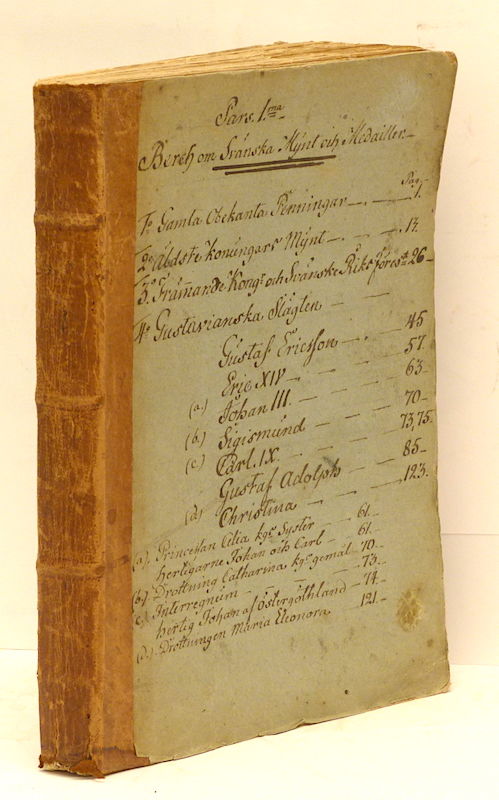 Pars. 1.ma
Berch om Svänska Mÿnt och Medailler.
Pag.
1º Gamla Obekanta Penningar — . — 1.
2º Äldste Konungars Mÿnt — . — . 14.
3º Främande Kong.r och Svänske Riks förest. 26 —
4º Gustavianska Slägten — —
Gustaf Ericsson — . — 45
Eric XIV — . — . — 57.
(a.) Johan III. — — — 63.
(b.) Sigismund — — — 70 —
(c.) Carl. IX. — — — 73,75.
Gustaf Adolph — — 85 —
(d.) Christina — — — 123.
(a.) Princeßan Cilia kgs Syster — 61.
hertigarne Johan och Carl — 61.
(b.) Drottning Catharina kgs gemål 70.
(c.) Interregnum — — 73.
hertig Johan af Östergöthland — 74.
(d.) Drottningen Maria Eleonora — 121.